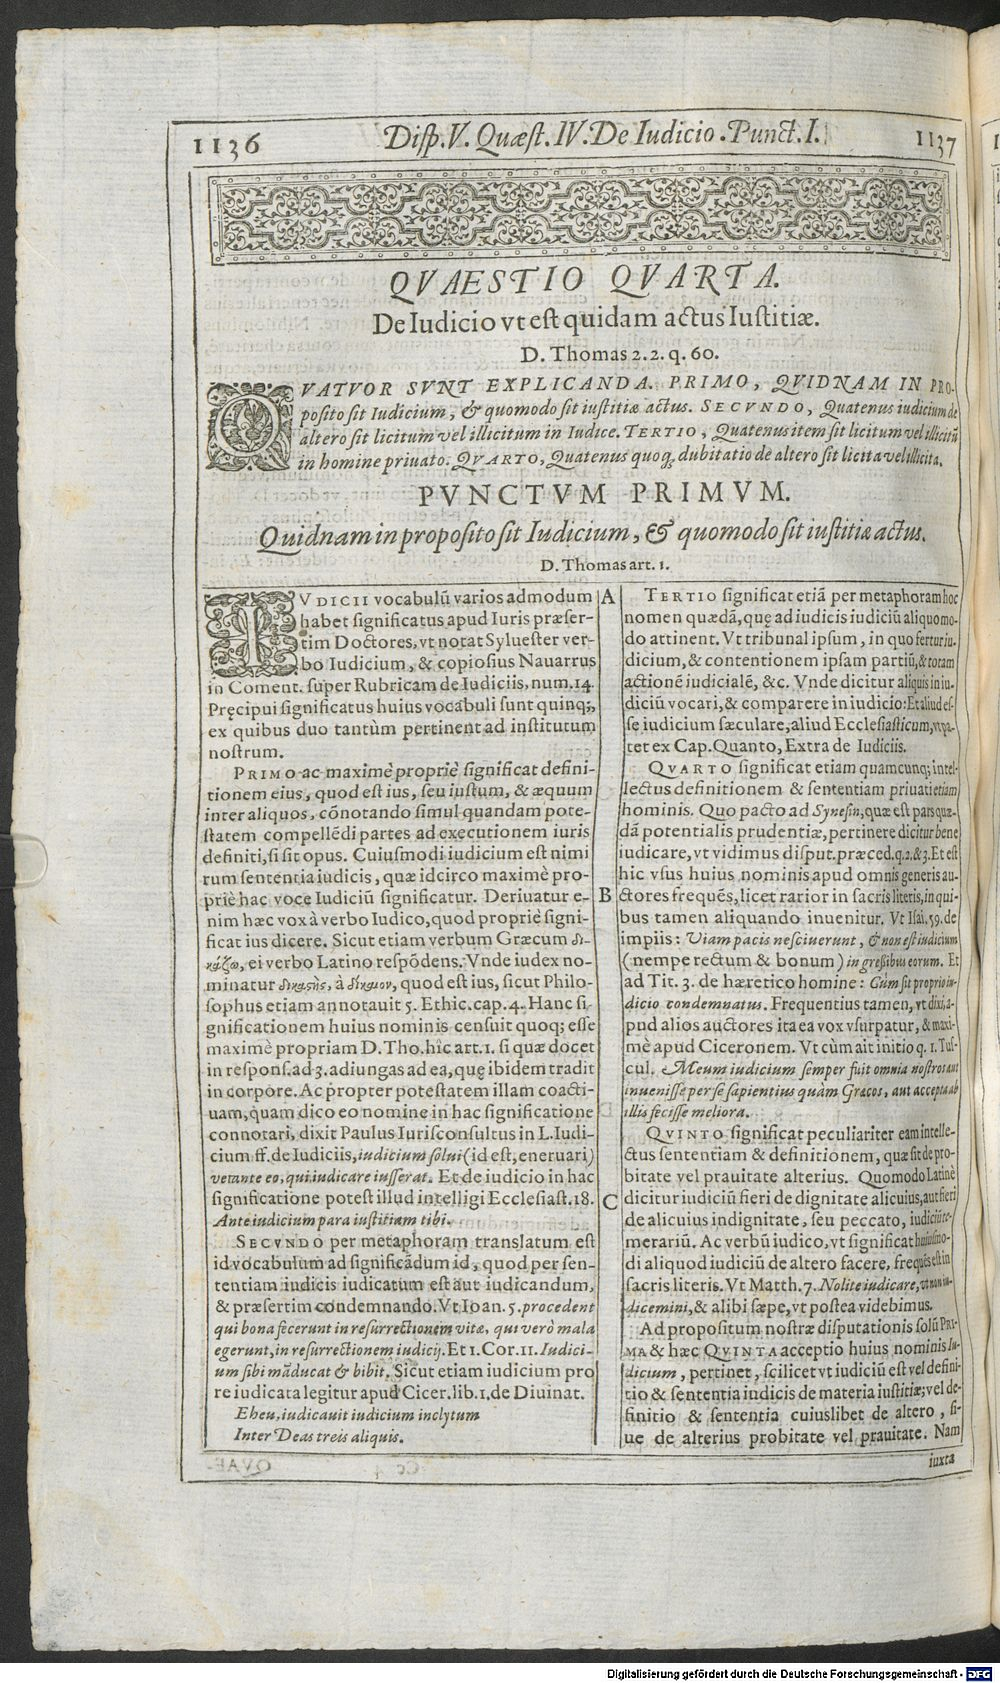 1136
Disp. V. Quæst. IV. De Iudicio. Punct. I.
1137
QVAESTIO QVARTA.
De Iudicio vt est quidam actus Iustitiæ.
D. Thomas 2. 2. q. 60.
QVATVOR SVNT EXPLICANDA. PRIMO, QVIDNAM IN PRO-
posito sit Iudicium, & quomodo sit iustitiæ actus. SECVNDO, Quatenus iudicium de
altero sit licitum vel illicitum in Iudice. TERTIO, Quatenus item sit licitum vel illicitū
in homine priuato. QVARTO, Quatenus quoq; dubitatio de altero sit licita vel illicita.
PVNCTVM PRIMVM.
Quidnam in proposito sit Iudicium, & quomodo sit iustitiæ actus.
D. Thomas art. 1.
IVDICII vocabulū varios admodum
habet significatus apud Iuris præser-
tim Doctores, vt notat Syluester ver-
bo Iudicium, & copiosius Nauarrus
in Coment. super Rubricam de Iudiciis, num. 14.
Pręcipui significatus huius vocabuli sunt quinq;,
ex quibus duo tantùm pertinent ad institutum
nostrum.
PRIMO ac maximè propriè significat defini-
tionem eius, quod est ius, seu iustum, & æquum
inter aliquos, cōnotando simul quandam pote-
statem compellēdi partes ad executionem iuris
definiti, si sit opus. Cuiusmodi iudicium est nimi
rum sententia iudicis, quæ idcirco maximè pro-
priè hac voce Iudiciū significatur. Deriuatur e-
nim hæc vox à verbo Iudico, quod propriè signi-
ficat ius dicere. Sicut etiam verbum Græcum δι-
κάζω, ei verbo Latino respōdens. Vnde iudex no-
minatur δικαστὴς, à δίκαιον, quod est ius, sicut Philo-
sophus etiam annotauit 5. Ethic. cap. 4. Hanc si-
gnificationem huius nominis censuit quoq; esse
maximè propriam D. Tho. hîc art. 1. si quæ docet
in respons. ad 3. adiungas ad ea, quę ibidem tradit
in corpore. Ac propter potestatem illam coacti-
uam, quam dico eo nomine in hac significatione
connotari, dixit Paulus Iurisconsultus in L. Iudi-
cium ff. de Iudiciis, iudicium solui (id est, eneruari)
vetante eo, qui iudicare iusserat. Et de iudicio in hac
significatione potest illud intelligi Ecclesiast. 18.
Ante iudicium para iustitiam tibi.
SECVNDO per metaphoram translatum est
id vocabulum ad significādum id, quod per sen-
tentiam iudicis iudicatum est aut iudicandum,
& præsertim condemnando. Vt Ioan. 5. procedent
qui bona fecerunt in resurrectionem vitæ, qui verò mala
egerunt, in resurrectionem iudicij. Et 1. Cor. 11. Iudici-
um sibi māducat & bibit. Sicut etiam iudicium pro
re iudicata legitur apud Cicer. lib. 1. de Diuinat.
Eheu, iudicauit iudicium inclytum
Inter Deas treis aliquis.
A
B
C
TERTIO significat etiā per metaphoram hoc
nomen quædā, quę ad iudicis iudiciū aliquo mo-
do attinent. Vt tribunal ipsum, in quo fertur iu-
dicium, & contentionem ipsam partiū, & totam
actionē iudicialē, &c. Vnde dicitur aliquis in iu-
diciū vocari, & comparere in iudicio: Et aliud es-
se iudicium sæculare, aliud Ecclesiasticum, vt pa-
tet ex Cap. Quanto, Extra de Iudiciis.
QVARTO significat etiam quamcunq; intel-
lectus definitionem & sententiam priuati etiam
hominis. Quo pacto ad Synesin, quæ est pars quæ-
dā potentialis prudentiæ, pertinere dicitur bene
iudicare, vt vidimus disput. præced. q. 2. & 3. Et est
hic vsus huius nominis apud omnis generis au-
ctores frequēs, licet rarior in sacris literis, in qui-
bus tamen aliquando inuenitur. Vt Isai. 59. de
impiis: Viam pacis nesciuerunt, & non est iudicium
(nempe rectum & bonum) in gressibus eorum. Et
ad Tit. 3. de hæretico homine: Cùm sit proprio iu-
dicio condemnatus. Frequentius tamen, vt dixi, a-
pud alios auctores ita ea vox vsurpatur, & maxi-
mè apud Ciceronem. Vt cùm ait initio q. 1. Tus-
cul. Meum iudicium semper fuit omnia nostros aut
inuenisse per se sapientius quàm Græcos, aut accepta ab
illis fecisse meliora.
QVINTO significat peculiariter eam intelle-
ctus sententiam & definitionem, quæ sit de pro-
bitate vel prauitate alterius. Quomodo Latinè
dicitur iudiciū fieri de dignitate alicuius, aut fieri
de alicuius indignitate, seu peccato, iudiciū te-
merariū. Ac verbū iudico, vt significat huiusmo-
di aliquod iudiciū de altero facere, frequēs est in
sacris literis. Vt Matth. 7. Nolite iudicare, vt non iu-
dicemini, & alibi sæpe, vt postea videbimus.
Ad propositum nostræ disputationis solū PRI-
MA & hæc QVINTA acceptio huius nominis Iu-
dicium, pertinet, scilicet vt iudiciū est vel defini-
tio & sententia iudicis de materia iustitiæ; vel de-
finitio & sententia cuiuslibet de altero, si-
ue de alterius probitate vel prauitate. Nam
iuxta
Digitalisierung gefördert durch die Deutsche Forschungsgemeinschaft - DFG